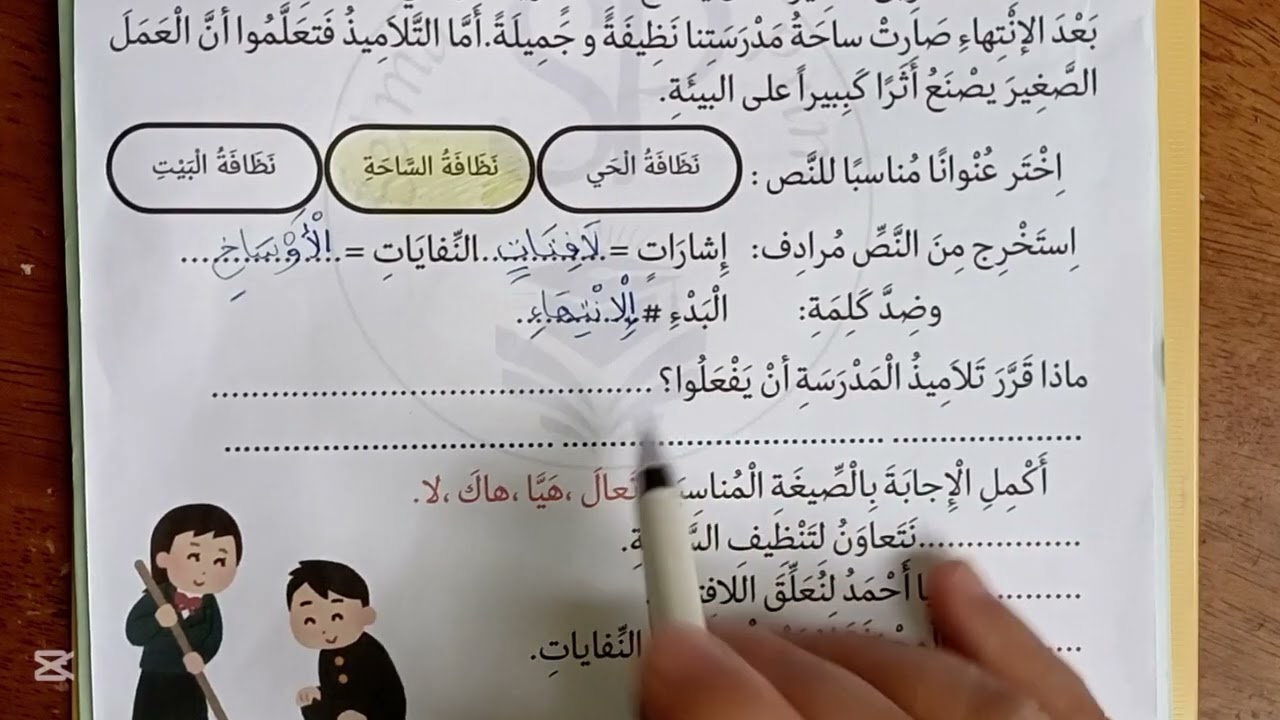 بَعْدَ الإنْتِهاءِ صَارَتْ ساحَةُ مَدْرَسَتِنا نَظِيفَةً و جَمِيلَةً.أَمَّا التَّلَامِيذُ فَتَعَلَّمُوا أنَّ الْعَمَلَ
الصَّغِيرَ يصْنَعُ أَثَرًا كَبِيراً على البيئَةِ.
اِخْتَر عُنْوانًا مُناسبًا للنَّص : نَظَافَةُ الْحَي نَظَافَةُ السَّاحَةِ نَظَافَةُ الْبَيْتِ
اِستَخْرِج مِنَ النَّصِّ مُرادِف: إِشارَاتٍ =..لَافِتَاتٍ..النِّفايَاتِ =..الْأَوْسَاخِ.....
وضِدَّ كَلِمَةِ: الْبَدْءِ #..إِلْانْتِهَاءِ..
ماذا قَرَّرَ تَلاَمِيذُ الْمَدْرَسَةِ أنْ يَفْعَلُوا؟.......................................
...............................................................................
أَكْمِلِ الْإِجابَةَ بِالصِّيغَةِ الْمُناسِبَ تَعالَ ،هَيَّا ،هاكَ ،لا.
................نَتَعاوَنُ لتَنْظِيفِ
............ أَحْمَدُ لِنُعَلِّقَ
النِّفاياتِ.